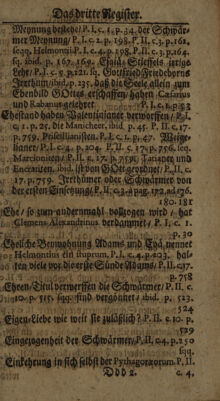 Das dritte Register.
Meynung bestehe / P. I. c. 1. p. 34. der Schwär-
mer Meynung / P. I. c. 2. p. 198. P. II. c. 3. p. 162.
seqq. Helmontii P. I. c. 4. p. 198. P. II. c. 3. p. 164.
sq. ibid. p. 167. 169. Esaiä Stieffels irrige
Lehr / P. I. c. 9. p. 121. sq. Gottfried Friedeborns
Irrthum / ibid. p. 235. daß die Seele allein zum
Ebenbild GOttes erschaffen / haben Cæsarius
und Rabanus gelehret P. I. c. 1. p. 23
Ehestand haben Valentinianer verworffen / P. I.
c. 1. p. 26. die Manicheer, ibid. p. 45. P. II. c. 17.
p. 759. Priscillianisten. P. I. c. 1. p. 47.
ianer / P. I. c. 4. p. 104. P. II. c. 17. p. 756. seq.
Marcioniten / P. II. c. 17. p. 759. Tatianer und
Encratiten. ibid. ist von GOtt geordnet / P. II. c.
17. p. 759. Irrthümer oder Schwärmer von
der ersten Einsetzung / P. II. c. 3. à pag. 172. ad 176.
180. 181
Ehe / so zum andernmahl vollzogen wird / hat
Clemens Alexandrinus verdammet / P. I. c. 1.
p. 30
Eheliche Beywohnung Adams und Evä nennet
Helmontius ein stuprum, P. I. c. 4. p. 203. hal-
ten viele vor die erste Sünde Adams / P. II. c. 17.
p. 758
Ehren-Titul verwerffen die Schwärmer / P. II. c.
10. p. 515. sqq. sind vergönnet / ibid. p. 523.
524
Eigen-Liebe wie weit sie zuläßlich? P. II. c. 10. p.
529
Eingezogenheit der Schwärmer / P. II. c. 4. p. 250
sqq.
Einkehrung in sich selbst der Pythagoræorum. P. II.
Ddd 2. c. 4.